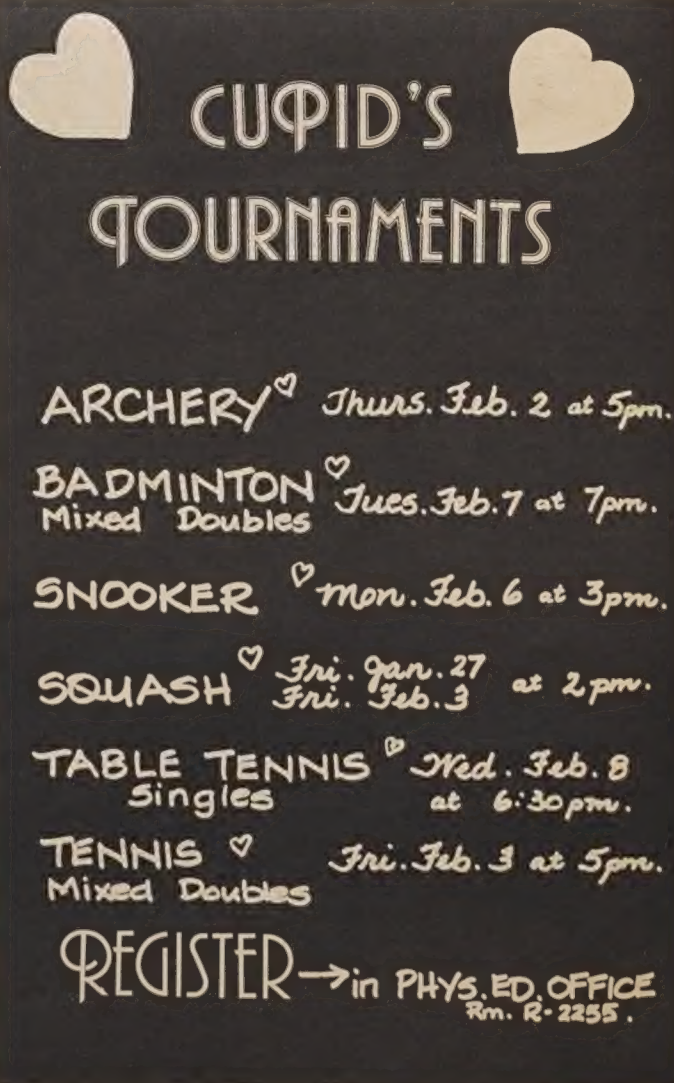 CUPID'S
TOURNAMENTS
ARCHERY Thurs. Feb. 2 at 5pm.
BADMINTON Tues. Feb. 7 at 7pm.
Mixed Doubles
SNOOKER Mon. Feb. 6 at 3pm.
SQUASH Fri. Jan. 27
Fri. Feb. 3 at 2pm.
TABLE TENNIS Wed. Feb. 8
Singles at 6:30pm.
TENNIS Fri. Feb. 3 at 5pm.
Mixed Doubles
REGISTER → in PHYS. ED. OFFICE
Rm. R-2255.